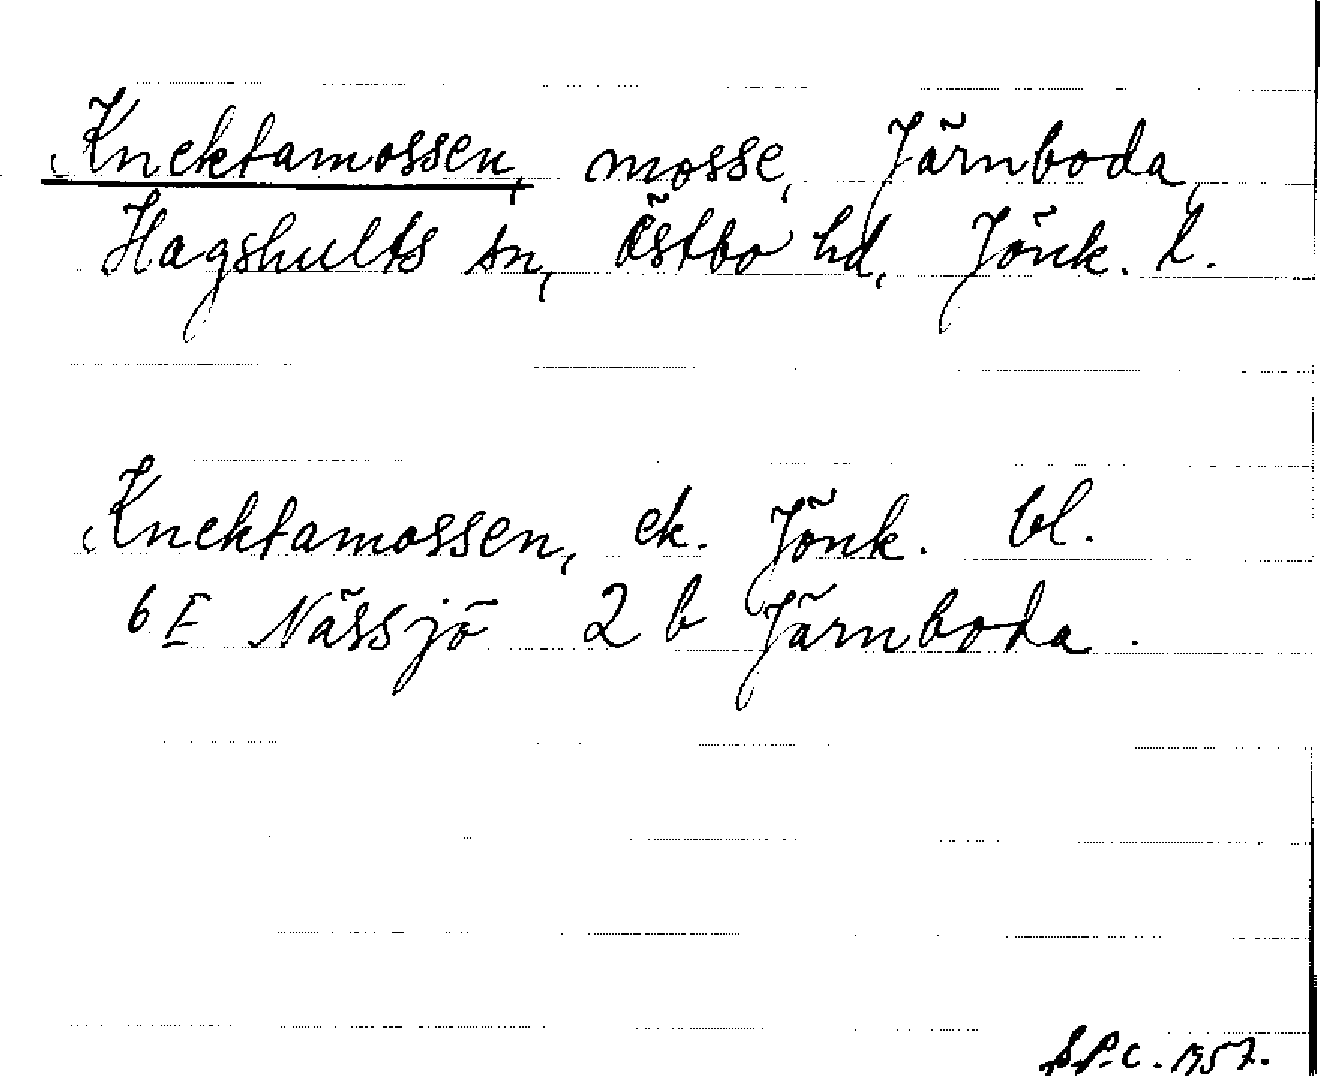 Knektamossen, mosse, Järnboda,
Hagshults sn, Östbo hd, Jönk. l.
Knektamossen, ek. Jönk. bl.
6 E Nässjö 2 b Järnboda.
S.P.C. 1957.